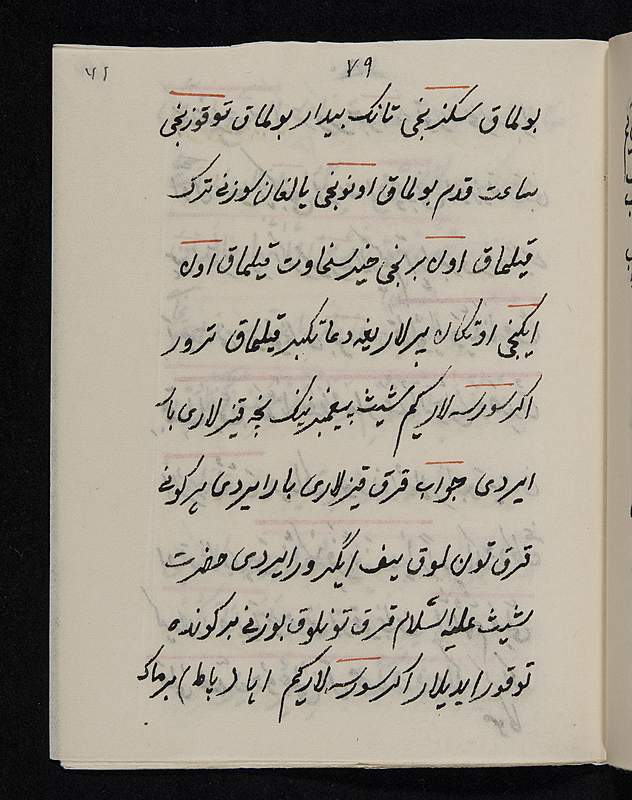 ٧٩
بولماق سکزنجی تانک بیدار بولماق توقوزنجی
ساعت قدم بولماق اونونجی یالغان سوزنی ترک
قیلماق اول برنجی خیر سخاوت قیلماق اول
ایکنجی اوتکان پیرلاریغه دعا تکبیر قیلماق ترور
اکر سورسه لار کیم شیث پیغمبرنینک نچه قیزلاری بار
ایردی جواب قرق قیزلاری بار ایردی هر کونی
قرق تون لوق ییف ایگیرور ایردی حضرت
شیث علیه السّلام قرق تونلوق بوزنی بر کونده
توقور ایدیلار اکر سورسه لار کیم اپا (رباط) برماک